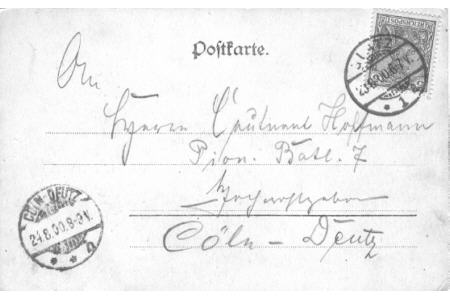 Postkarte.
An
Herrn Leutnant Hoffmann
Pion. Batl. 7
Hochwohlgeboren
Cöln-Deutz
CÖLN-DEUTZ
24.8.00.8-9V.